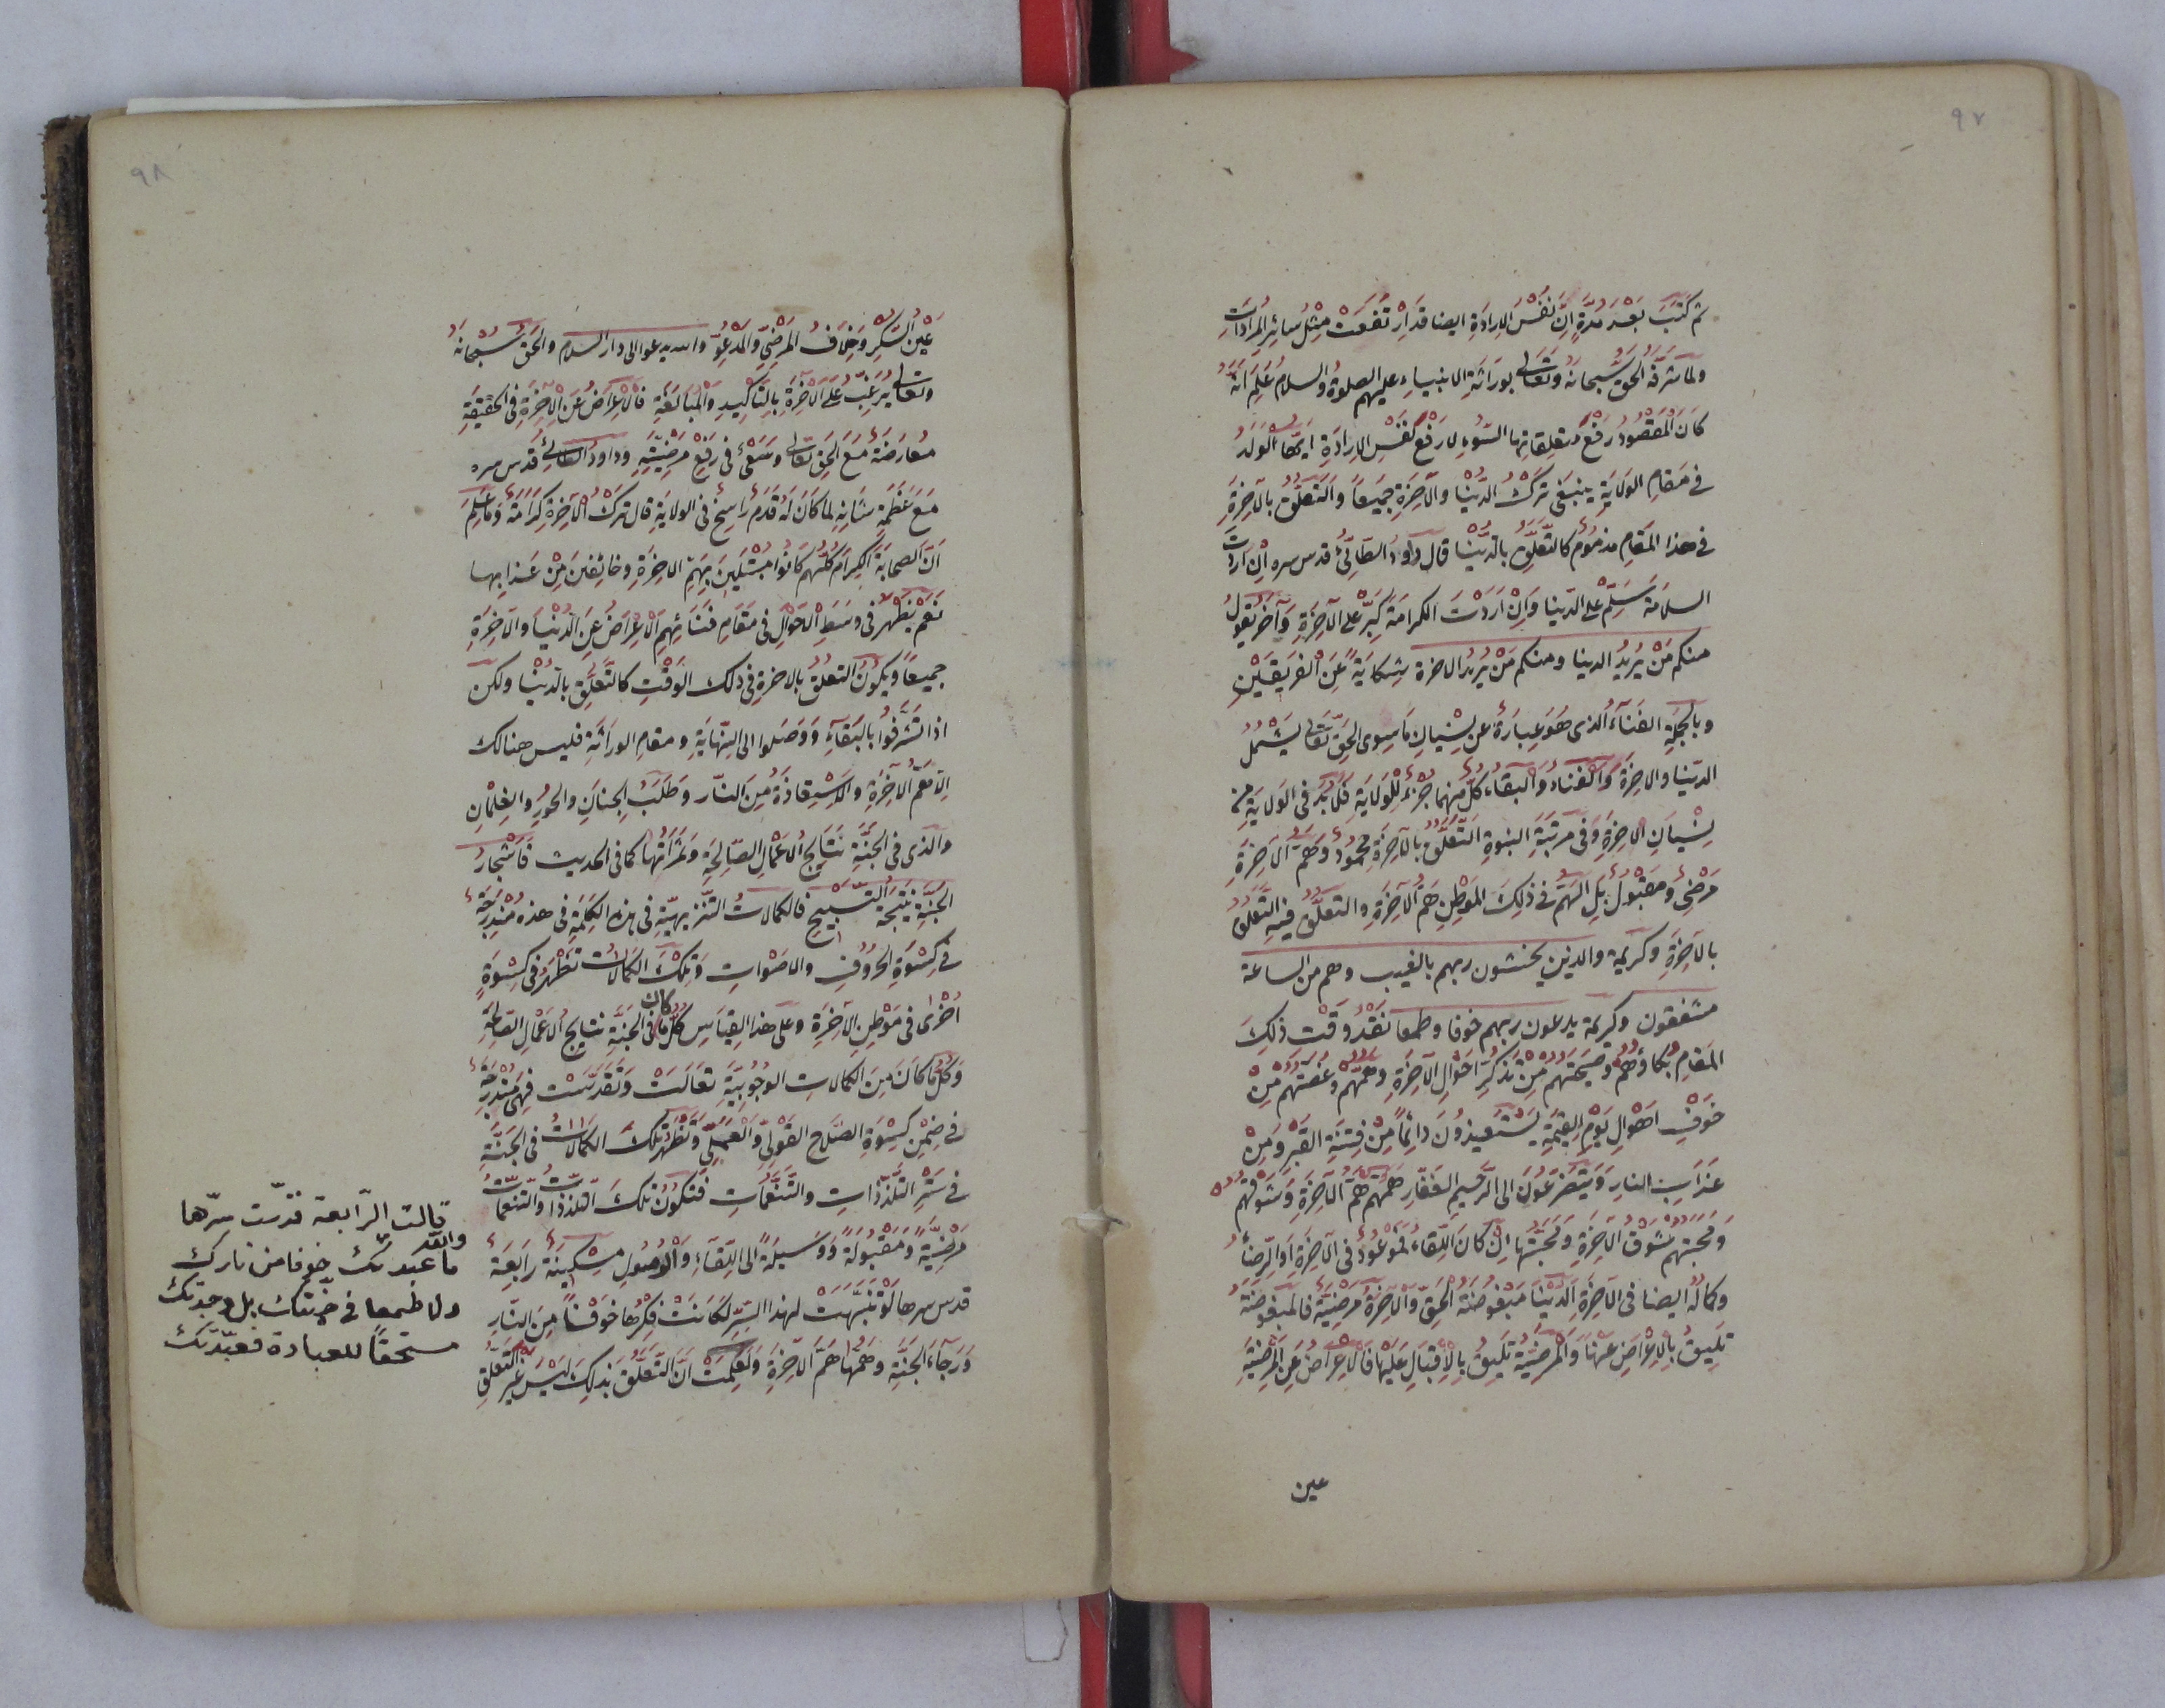 ٩٧
ثم كَتَبَ بَعْدَ مُدَّةٍ اِنَّ نَفْسَ الاِرادَةِ ايضا قَدِ ارْتَفَعَتْ مِثْلَ سائِرِ المُراداتِ
ولما شَرَّفَهُ الحَقُّ سُبحانَهُ وتَعَالى بوراثَةِ الانبياءِ عليهم الصلوةُ والسلامُ عَلِمَ اَنَّهُ
كانَ المَقْصُودُ رَفْعَ متعلقاتِها السُّوءِ لا رَفْعَ نَفْسِ الاِرادَةِ ايّها الْوَلَدُ
في مَقامِ الوَلايَةِ ينبَغى تَرْكُ الدُّنْيا والآخِرَةِ جَميعًا والتَّعَلُّقُ بالآخِرَةِ
في هذا المَقامِ مذمُومٌ كالتَّعَلُّقِ بالدُّنْيا قال داودُ الطّائىُّ قدس سره اِنْ اَرَدْتَ
السلامَةَ سَلِّمْ على الدّنيا وَاِنْ اَرَدْتَ الكرامَةَ كَبِّرْ على الآخِرَةِ وَآخَرُ يقولُ
منكم مَنْ يُرِيدُ الدنيا ومنكم مَنْ يُريدُ الاخرة شِكايَةً عَنِ الفَريقَيْنِ
وبالجُمْلَةِ الفَناءُ الذى هُوَ عِبارَةٌ عن نِسْيانِ مَا سِوى الحَقِّ تَعَالى يَشْمُلُ
الدّنيا والاخِرَةَ وَالْفَناءُ وَالْبَقاءُ كلٌّ مِنْهما جُزْءٌ لِلْولايَةِ فَلا بُدَّ فى الولايَةِ مِنْ
نِسْيانِ الاخِرَةِ وَفى مَرْتَبَةِ النبوةِ التَّعَلُّقُ بالآخِرَةِ محمُودٌ وَهَمُّ الاخِرَةِ
مَرْضىٌّ ومَقْبُولٌ بَلِ الهَمُّ فى ذلِكَ المَوْطِنِ هَمُّ الآخِرَةِ والتعلُّقُ فيهِ التَّعَلُّقُ
بالآخِرَةِ وكريمة والذين يخشون ربهم بالغيب وهم من الساعة
مشفقون وكريمة يدعون ربهم خوفا وطمعا نَقْدُ وَقْتِ ذلِكَ
المَقامِ بُكاؤُهُمْ وصَيْحَتُهُم مِنْ تَذَكُّرِ اَحْوالِ الآخِرَةِ وهَمُّهُم وغُصَّتُهُم مِنْ
خَوْفِ اَهْوالِ يَوْمِ القِيمَةِ يَسْتَعيذُونَ دَائِماً مِنْ فِتنَةِ القَبْرِ وَمِنْ
عَذابِ النارِ وَيَتَضَرَّعُونَ الى الرَّحيمِ الغَفّارِ هَمُّهُم هَمُّ الآخِرَةِ وَشَوْقُهُمْ
وَمُحَبَّتُهُم شَوْقُ الآخِرَةِ وَمُحَبَّتُها اِنْ كانَ اللِّقاءُ فمَوْعُودٌ فى الآخِرَةِ اَوِ الرِّضاءُ
وكمالُهُ ايضا فى الآخِرَةِ اَلدُّنْيا مَبْغُوضَةُ الحَقِّ وَالآخِرَةُ مرضِيَّةٌ فالمَبْغُوضَةُ
تَليقُ بِالاِعْراضِ عَنْها وَالْمَرْضِيَّةُ تَليقُ بِالاِقْبالِ عَلَيْها فَالاِعْراضُ عَنِ المَرْضِيَّةِ
عين
٩٨
عَيْنُ السُّكْرِ وَخِلافُ المَرْضِيِّ وَالْمَدْعُوِّ والله يدعوا الى دار السلام والحق سُبْحَانَهُ
وتعالى يُرَغِّبُ عَلَى الآخِرَةِ بِالتَّاكيدِ وَالْمُبالَغَةِ فالاِعْراضُ عَنِ الآخِرَةِ فى الحقيقَةِ
مُعارَضَةٌ مَعَ الحَقِّ تعالى وسَعْىٌ فى رَفْعِ مَرْضِيَّتِهِ وداودُ الطّائىُّ قدس سره
مَعَ عَظَمَةِ شَانِهِ لما كانَ لَهُ قَدَمٌ رَاسِخٌ فى الولايَةِ قال تَرْكُ الآخِرَةِ كَرَامَةٌ وَما عَلِمَ
اَنَّ الصحابَةَ الكِرَامَ كُلَّهُم كانُوا مُبْتَلَيْنَ بِهَمِّ الاخِرَةِ وخائِفينَ مِنْ عَذابِها
نَعَمْ يَظْهَرُ فى وَسَطِ الاَحْوَالِ فى مَقامِ فَنائِهِم الاِعْرَاضُ عَنِ الدُّنْيا والآخِرَةِ
جميعًا ويَكُونُ التعلُّقُ بالاخرةِ فى ذلك الوَقْتِ كالتَّعَلُّقِ بالدُّنْيا ولكن
اذا تَشَرَّفُوا بالبَقاءِ وَوَصَلوا الى النِّهايَةِ ومقامِ الوراثَةِ فليس هنالك
اِلاّ هَمُّ الآخِرَةِ والاسْتِعاذَةُ مِنَ النّار وطَلَبُ الجِنانِ والحُورِ والغِلْمانِ
والذى فى الجَنَّةِ نَتايجُ الاَعْمالِ الصّالِحَةِ وَثَمَراتُها كما فى الحديث فَاَشْجارُ
الجَنَّةِ نَتيجَةُ التَّسْبيحِ فالكمالاتُ التَّنْزيهيَّةِ فى هذه الكَلِمَةِ فى هذه مُنْدَرِجَةٌ
فى كِسْوَةِ الحُرُوفِ والاصْواتِ وَتِلْكَ الكمالاتُ تَظْهَرُ فى كِسْوَةٍ
اُخْرى فى مَوْطِنِ الآخِرَةِ وعلى هذا القِياسِ كُلُّ ما كان فى الجَنَّةِ نتايجُ الاَعْمالِ الصّالحَةِ
وَكُلُّ ما كانَ مِنَ الكمالاتِ الوُجُوبِيَّةِ تَعَالَتْ وَتَقَدَّسَتْ فهى مُنْدَرِجَةٌ
فى ضِمْنِ كِسْوَةِ الصَّلاحِ القَوْلىِّ وَالْعَمَلىِّ وَتَظْهَرُ تِلْكَ الكَمالاتُ فى الجَنَّةِ
فى سَتْرِ التَّلَذُّذاتِ والتَّنَعُّماتِ فَتَكُونُ تِلْكَ التلذذاتُ والتَّنَعُّماتُ
مَرْضِيَّةً وَمَقْبُولَةً وَوَسيلَةً الى اللِّقاءِ وَالْوُصُولِ مِسْكينَةٌ رَابِعَةُ
قدس سرها لَوْ تَنَبَّهَتْ لهذا السِّرِّ لكانَتْ فِكْرُها خَوْفاً مِنَ النّارِ
وَرَجاءَ الجَنَّةِ وهَمُّها هَمَّ الآخِرَةِ وَلَعَلِمَتْ اَنَّ التَّعَلُّقَ بذلِكَ لَيْسَ غَيْرَ التَّعَلُّقِ
قالت الرّابعة قدّست سرّها
والله
ما عبدتك خوفا من نارك
ولا طمعا فى جنّتك بل وجدتك
مستحقاً للعبادة فعبدتك